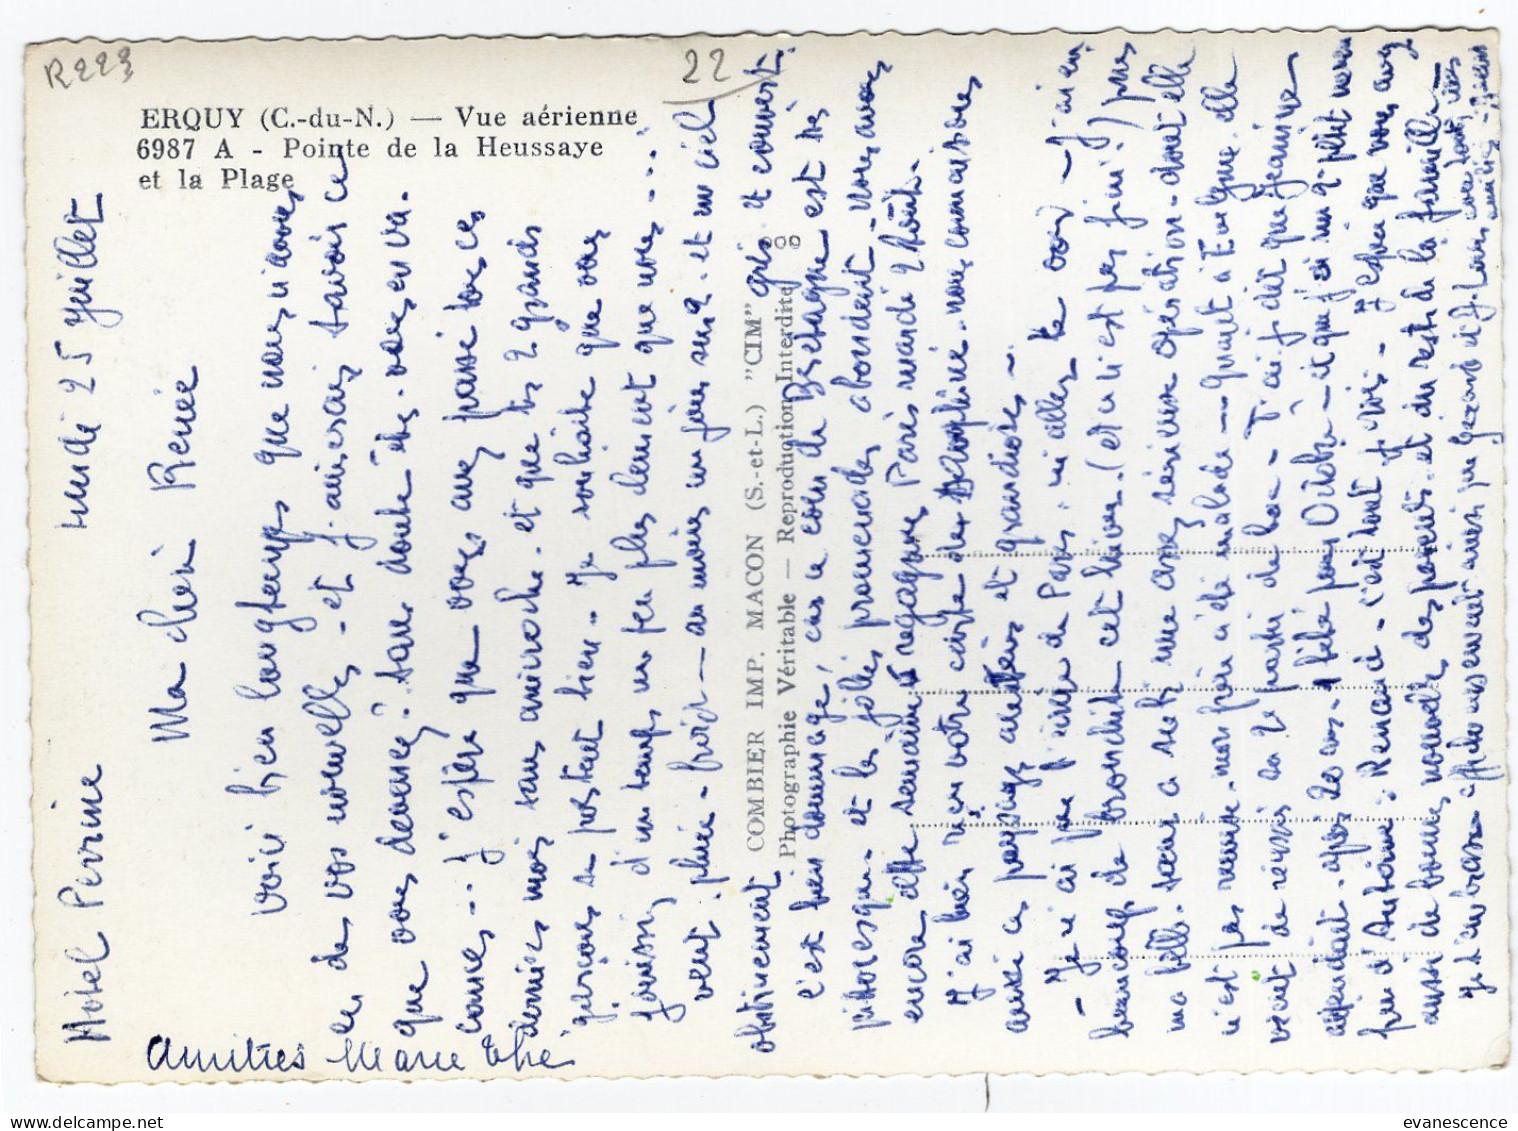 R223
22
ERQUY (C.-du-N.) — Vue aérienne
6987 A - Pointe de la Heussaye
et la Plage
COMBIER IMP. MACON (S.-et-L.) "CIM"
Photographie Véritable — Reproduction Interdite
Hotel Perrine lundi 25 juillet
Ma chère Renée
Voici bien longtemps que nous n'avons
eu de vos nouvelles. et j'aimerais savoir ce
que vous devenez? sans doute êtes-vous en va-
cances... j'espère que vous avez passé tous ces
derniers mois sans anicroche. et que les 2 grands
garçons se portent bien. Je souhaite que vous
jouissiez d'un temps un peu plus clément que nous....
vent. pluie. froid — au moins un jour sur 2. et un ciel
obstinément gris et couvert.
c'est bien dommage, car ce coin de Bretagne est très
pittoresque. et les jolies promenades abondent. nous avons
encore cette semaine et regagnons Paris mardi 2 Août.
J'ai bien reçu votre carte du Dauphiné. nous connaissons
aussi ces paysages et grandioses.
- Je n'ai pas de Paris. ni aller te voir - J'ai eu
beaucoup de bronchite cet hiver. (et ce n'est pas fini!) puis
ma belle-sœur a subi une assez sérieuse opération. dont elle
n'est pas remise. mon frère a été malade — quant à elle
vient de réussir sa 2e partie de bac - T'ai-je dit que Jeannine
attendait. après 20 ans. 1 bébé pour Octobre. et que j'ai un petit neveu
d'Antoine: Renaud. c'est tout je crois. J'espère que vous avez
aussi de bonnes nouvelles des parents. et du reste de la famille —
Je t'embrasse affectueusement ainsi que Gérard et J. Louis
Amitiés Marie Thé
evanescence